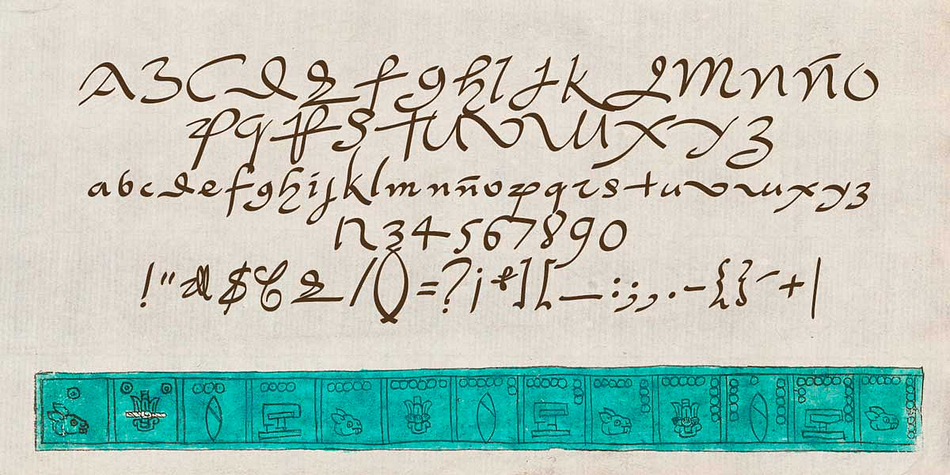 ABCDEFGHIJKLMNÑO
PQRSTUVWXYZ
abcdefghijklmnñopqrstuvwxyz
1234567890
!"#$%&/()=?¡*][_:;,.-{}´+|